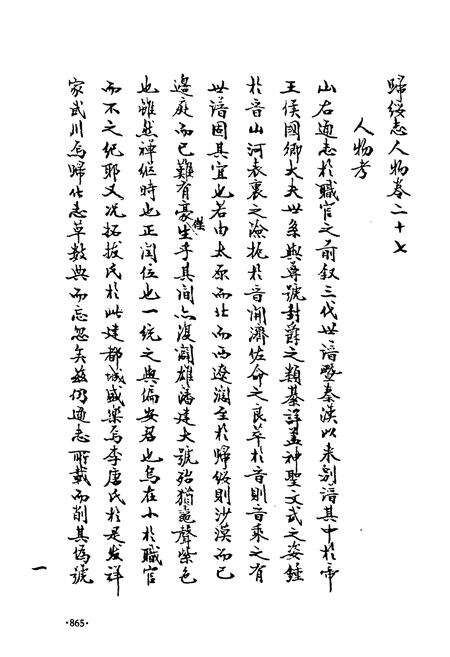 歸綏志人物卷二十七
人物考
山右通志於職官之前叙三代世譜暨秦漢以来別譜其中於帝
王侯國卿大夫世系與尊號封爵之類綦詳蓋神聖文武之姿鍾
於晉山河表裏之險扼於晉開濟佐命之良萃於晉則晉乘之有
世譜固其宜也若由太原而北而西遼濶至於歸綏則沙漠而已
邊庭而已難有豪傑生乎其間亦復闢雄藩建大號殆猶黽聲紫色
也雖然禪繼時也正閏位也一統之與偏安君也烏在小於職官
而不之紀耶又况拓拔氏於此建都城盛樂焉李唐氏於是发祥
家武川焉歸化志草數典而忘忽矣茲仍通志所載而削其僞號
一
·865·